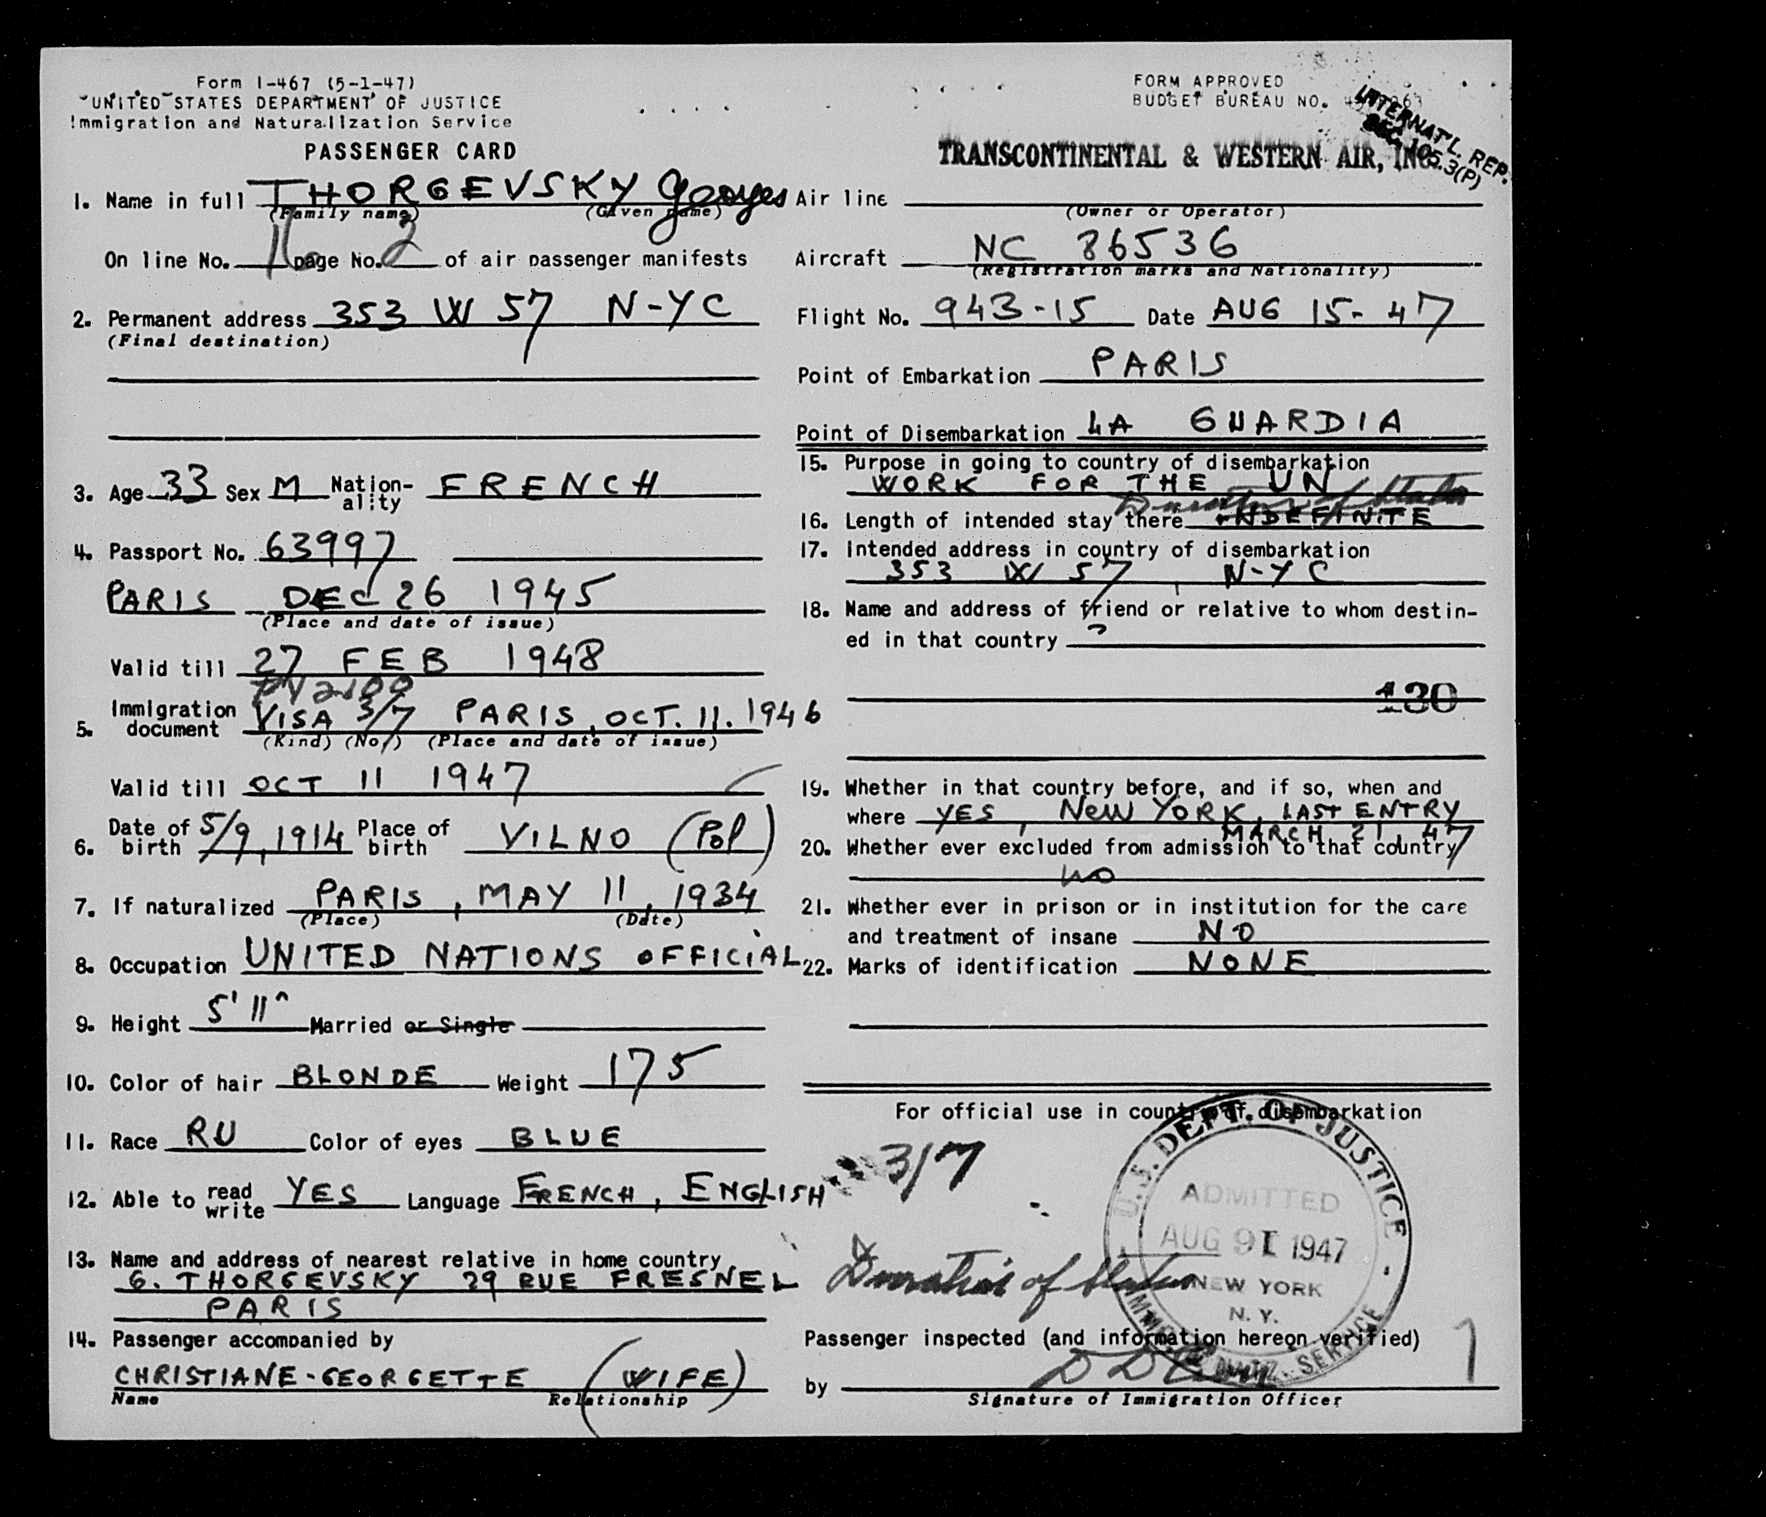 Form I-467 (5-1-47)
UNITED STATES DEPARTMENT OF JUSTICE
Immigration and Naturalization Service
PASSENGER CARD
1. Name in full THORGEVSKY Georges
(Family name) (Given name)
On line No. 16 page No. 2 of air passenger manifests
2. Permanent address 353 W 57 N-YC
(Final destination)
3. Age 33 Sex M Nation-ality FRENCH
4. Passport No. 63997
PARIS DEC 26 1945
(Place and date of issue)
Valid till 27 FEB 1948
5. Immigration document VISA 3/7 PARIS, OCT. 11. 1946
(Kind) (No.) (Place and date of issue)
Valid till OCT 11 1947
6. Date of birth 5/9, 1914 Place of birth VILNO (Pol)
7. If naturalized PARIS, MAY 11, 1934
(Place) (Date)
8. Occupation UNITED NATIONS OFFICIAL
9. Height 5' 11" Married or Single
10. Color of hair BLONDE Weight 175
11. Race RU Color of eyes BLUE
12. Able to read write YES Language FRENCH, ENGLISH
13. Name and address of nearest relative in home country
G. THORGEVSKY 29 RUE FRESNEL
PARIS
14. Passenger accompanied by
CHRISTIANE-GEORGETTE (WIFE)
Name Relationship
FORM APPROVED
BUDGET BUREAU NO.
INTERNAT'L. REP.
SEC. 105.3(P)
TRANSCONTINENTAL & WESTERN AIR, INC.
Air line
(Owner or Operator)
Aircraft NC 86536
(Registration marks and Nationality)
Flight No. 943-15 Date AUG 15-47
Point of Embarkation PARIS
Point of Disembarkation LA GUARDIA
15. Purpose in going to country of disembarkation
WORK FOR THE UN
Duration of Status
16. Length of intended stay there INDEFINITE
17. Intended address in country of disembarkation
353 W 57, N-YC
18. Name and address of friend or relative to whom destin-
ed in that country ?
130
19. Whether in that country before, and if so, when and
where YES, NEW YORK, LAST ENTRY
MARCH 21, 47
20. Whether ever excluded from admission to that country
no
21. Whether ever in prison or in institution for the care
and treatment of insane NO
22. Marks of identification NONE
For official use in country of disembarkation
3/7
Duration of Status
U.S. DEPT. OF JUSTICE
ADMITTED
1947
NEW YORK
N. Y.
SERVICE
Passenger inspected (and information hereon verified)
by
Signature of Immigration Officer
1